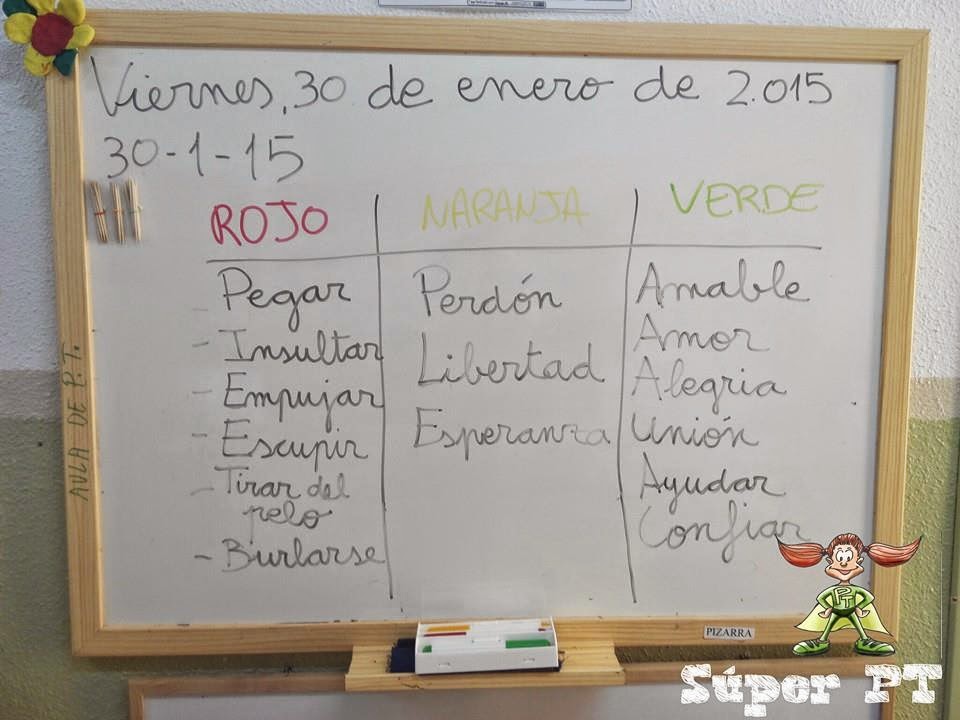 Viernes, 30 de enero de 2.015
30-1-15
ROJO
- Pegar
- Insultar
- Empujar
- Escupir
- Tirar del
pelo
- Burlarse
NARANJA
Perdón
Libertad
Esperanza
VERDE
Amable
Amor
Alegria
Unión
Ayudar
Confiar
AULA DE P.T.
PIZARRA
PT
Súper PT